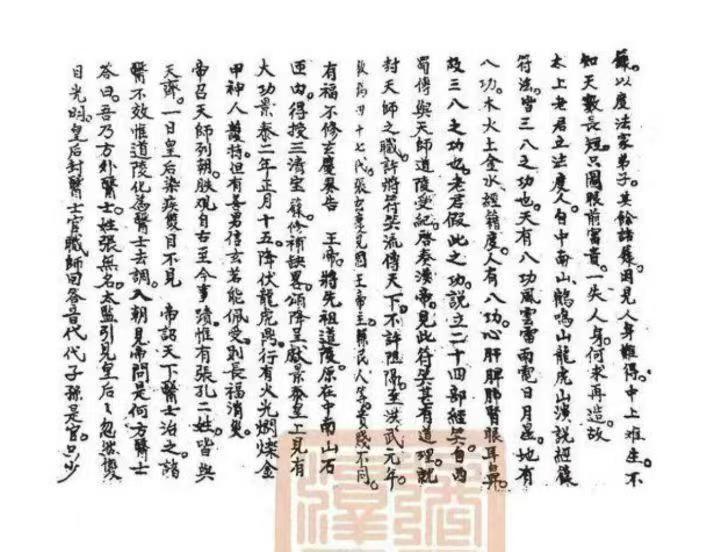 籙。以度法家弟子。其餘諸籙。因見人身難得。中土难生。不
知天數長短。只圖眼前富貴。一失人身。何來再造。故
太上老君立法度人。自中南山。鶴鳴山。龍虎山。演説經籙
符法。皆三八之功也。天有八功。風雲雷雨電日月星。地有
八功。木火土金水。經籍度。人有八功。心肝脾肺腎眼耳鼻。
故三八之功也。老君假此之功。説立二十四部經籙。自西
蜀傳與天師道陵受紀。啓奏漢帝。見此符籙甚有道理。就
封天師之職。許將符籙流傳天下。不許隱隔。至洪武元年。
四十七代。張玄慶見國王帝主縣民人等。貴賤不同。
有福不修。玄慶奏告　王帝。將先祖道陵。原在中南山石
匣内。得授三清宝籙。修補缺畧。頒降呈献景泰皇上。見有
大功。景泰二年正月十五。降伏龍虎。行有火光燗燦。金
甲神人護持。但有善男信女。若能佩受。則長福消災。
帝召天師列朝。朕观自古至今事蹟。惟有張孔二姓。皆與
天齊。一日皇后染疾。雙目不見　帝詔天下醫士治之。諸
醫不效。惟道陵化為醫士去調。入朝見帝。問是何方醫士
答曰。吾乃方外醫士。姓張無名。太監引見皇后。忽然雙
目光明。皇后封醫士官職。師回答音。代代子孫是官。只少